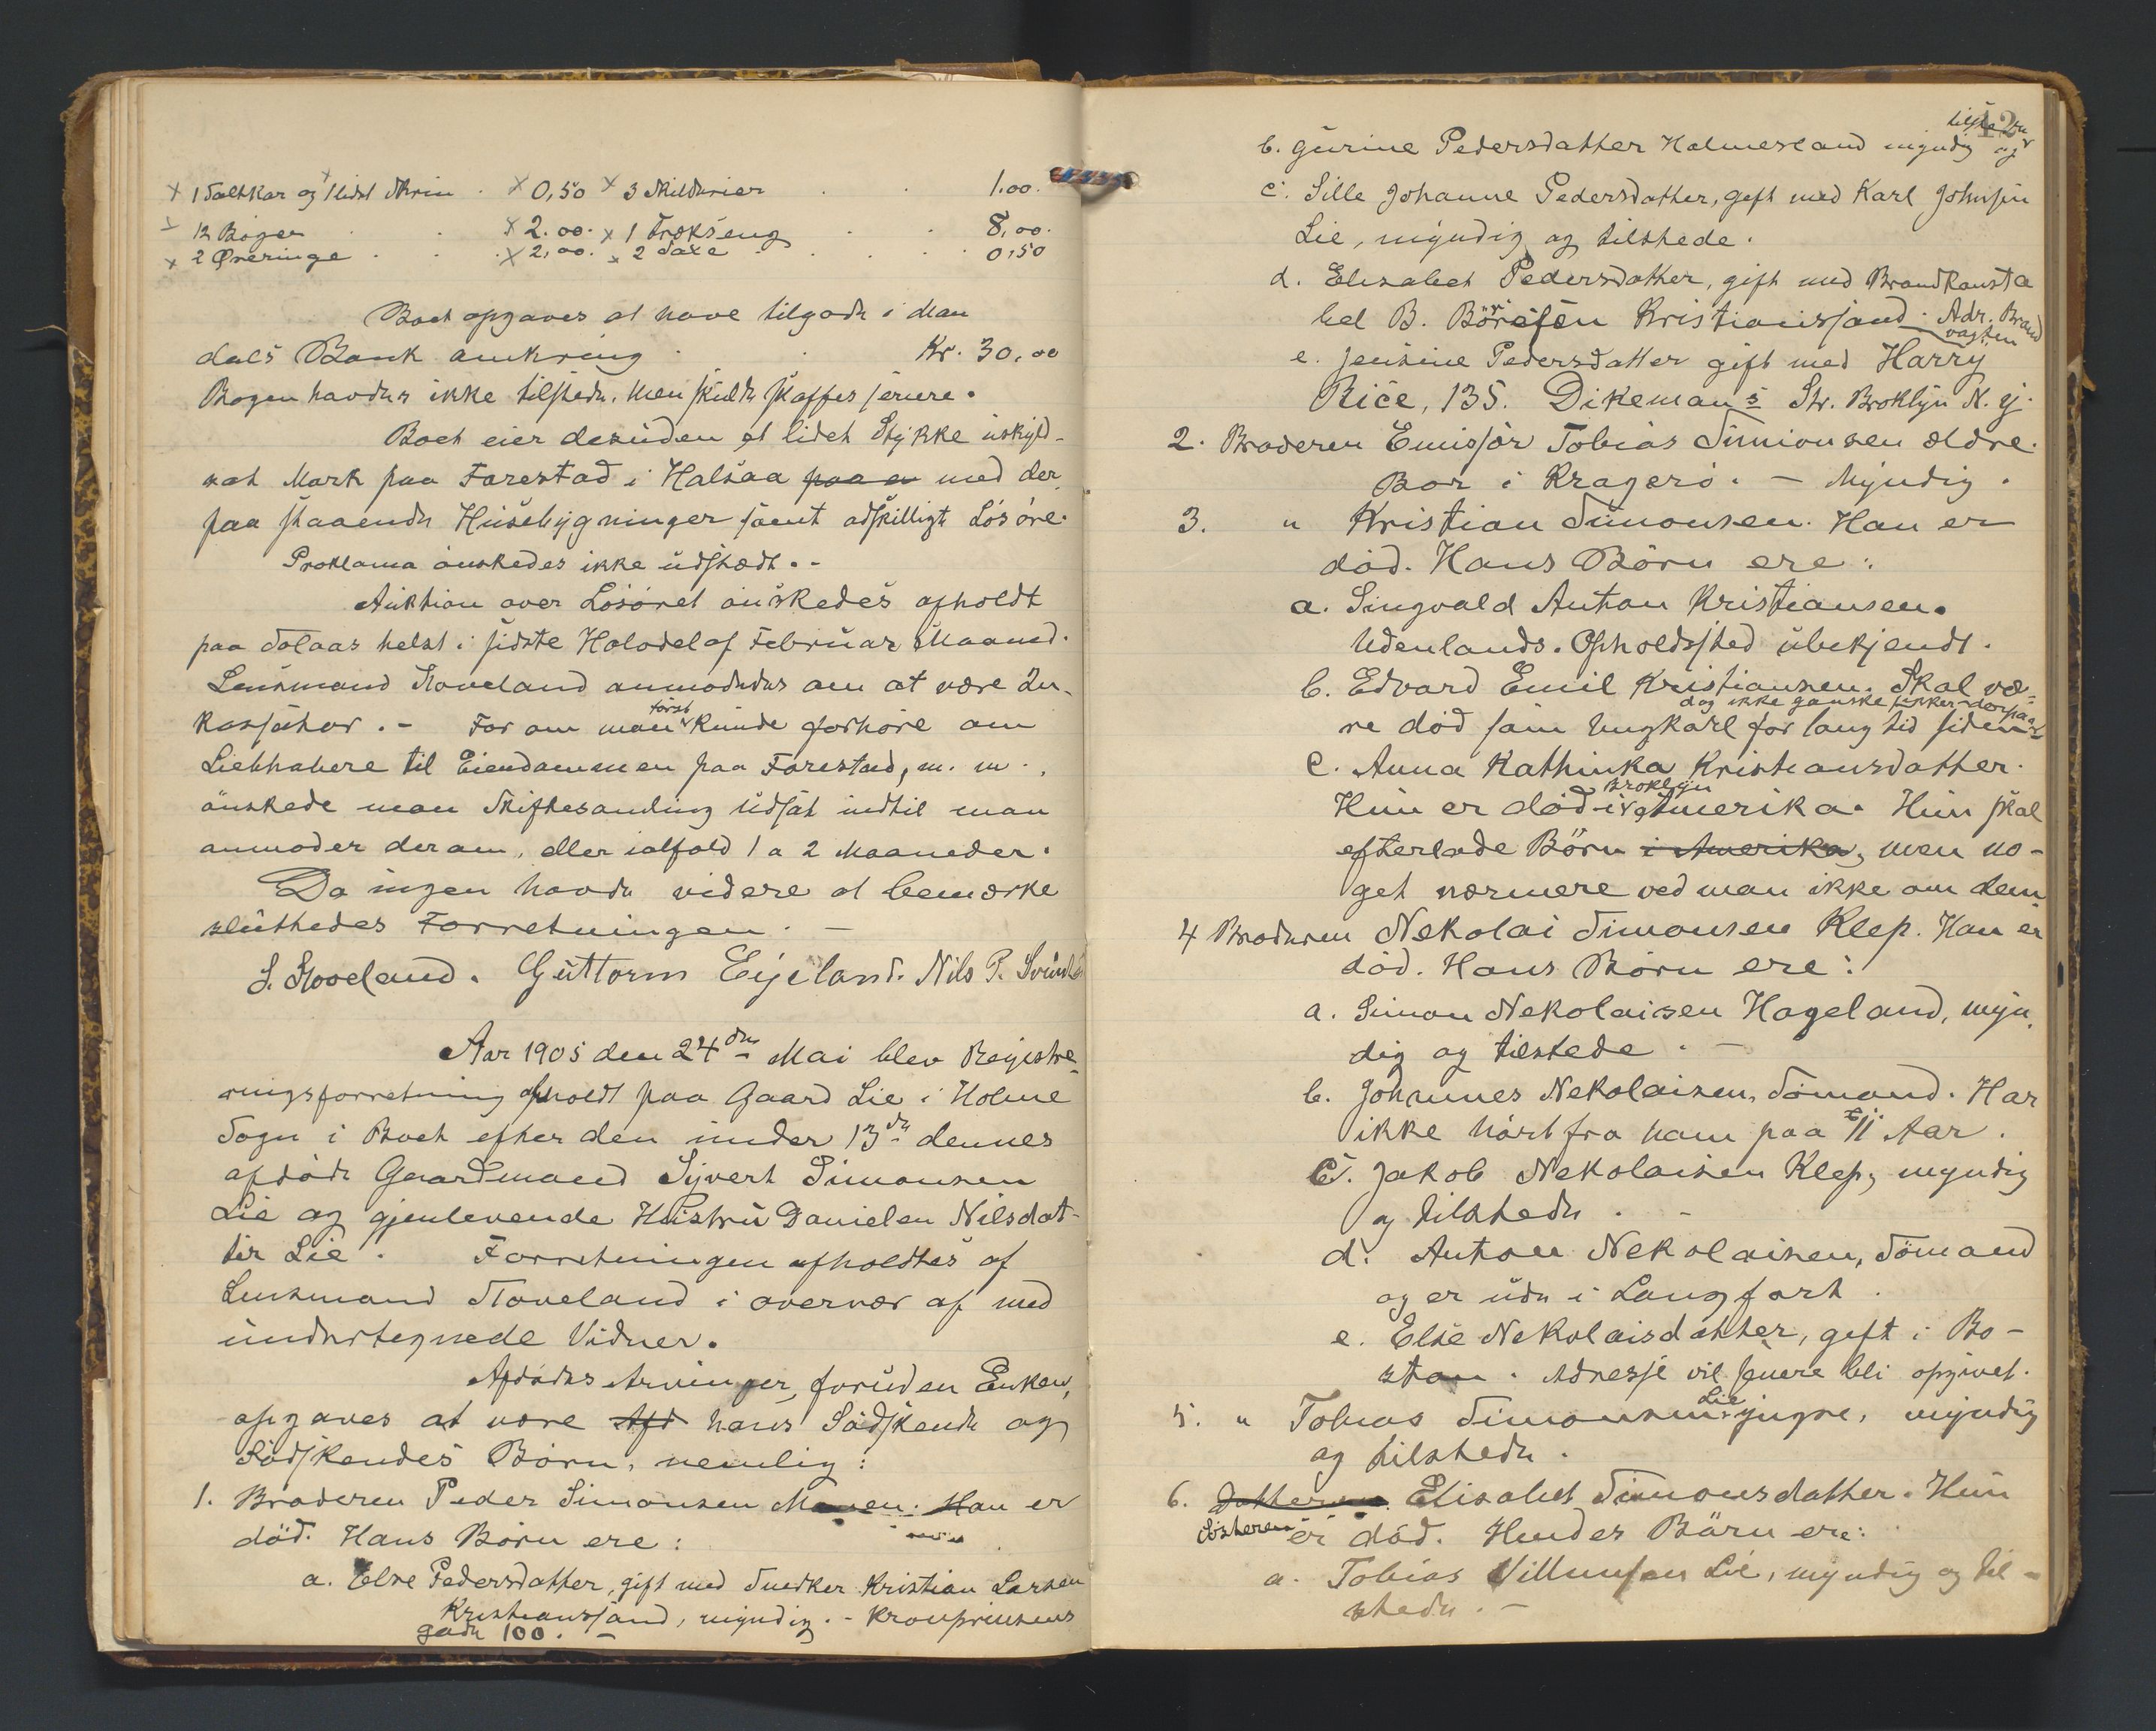 × 1 Saltkar og × 1 lidet Skrin . × 0,50 × 3 Skilderier . . 1.00.
× 12 Bøger . . × 2.00. × 1 Trækseng . . 8,00.
× 2 Øreringe . . × 2,00. × 2 Saxe . . . 0,50
Boet opgaves at have tilgode i Man
dals Bank omkring . . Kr. 30,00
Bogen havdes ikke tilstede, men skulde skaffes senere.
Boet eier desuden et lidet Stykke uskyld-
sat Mark paa Farestad i Halsaa paa en med der
paa staaende Husebygninger samt adskilligt Lösöre.
Proklama önskedes ikke udstædt. -
Auktion over Lösöret önskedes afholdt
paa Tolaas helst i sidste Halvdel af Februar Maaned.
Lensmand Stoveland anmodedes om at være In-
kassator. - For om man först kunde forhöre om
Liebhabere til Eiendommen paa Farestad, m. m.,
önskede man Skiftesamling udsat indtil man
anmoder derom, eller ialfald 1 a 2 Maaneder.
Da ingen havde videre at bemærke
sluttedes Forretningen. -
S. Stoveland. Guttorm Eijeland. Nils P.
Aar 1905 den 24de Mai blev Registre-
ringsforretning afholdt paa Gaard Lie i Holme
Sogn i Boet efter den under 13de dennes
afdöde Gaardmand Syvert Simonsen
Lie og gjenlevende Hustru Danielen Nilsdat-
ter Lie. Forretningen afholdtes af
Lensmand Stoveland i overvær af med
undertegnede Vidner.
Afdödes Arvinger, foruden Enken,
opgaves at være Afd hans Södskende og
Södskendes Börn, nemlig:
1. Broderen Peder Simonsen . Han er
död. Hans Börn ere:
a. Else Pedersdatter, gift med Snedker Kristian Larsen
Kristiansand, myndig. - Kronprinsens
gade 100. -
12
b. Gurine Pedersdatter Holmesland myndig og tilstede
c. Sille Johanne Pedersdatter, gift med Karl Johnsen
Lie, myndig og tilstede.
d. Elisabet Pedersdatter, gift med Brandkonsta
bel B. Börresen Kristiansand. Adr. Brand
vagten
e. Jensine Pedersdatter gift med Harry
Rice, 135. Dikemans Str. Broklyn N. y.
2. Broderen Emissær Tobias Simonsen ældre.
Bor i Kragerö. - Myndig.
3. " Kristian Simonsen. Han er
död. Hans Börn ere:
a. Singvald Anton Kristiansen.
Udenlands. Opholdssted ubekjendt.
b. Edvard Emil Kristiansen. Skal væ-
dog ikke ganske sikker derpaa
re död som Ungkarl for lang tid siden
c. Anna Kathinka Kristiansdatter.
Hun er död i Broklyn Amerika. Hun skal
efterlade Börn i Amerika, men no-
get nærmere ved man ikke om dem.
4 Broderen Nekolai Simonsen Klep. Han er
död. Hans Börn ere:
a. Simon Nekolaisen Hageland, myn
dig og tilstede. -
b. Johannes Nekolaisen, Sömand. Har
ikke hört fra ham paa 11 Aar.
c. Jakob Nekolaisen Klep, myndig
og tilstede. -
d. Anton Nekolaisen, Sömand
og er ude i Langfart.
e. Else Nekolaisdatter, gift i Bo-
ston. Adresse vil senere bli opgivet.
5. " Tobias Simonsen Lie yngre, myndig
og tilstede.
6. Datteren Elisabet Simonsdatter. Hun
Sösteren er död. Hendes Börn ere:
a. Tobias Villumsen Lie, myndig og til-
stede. -